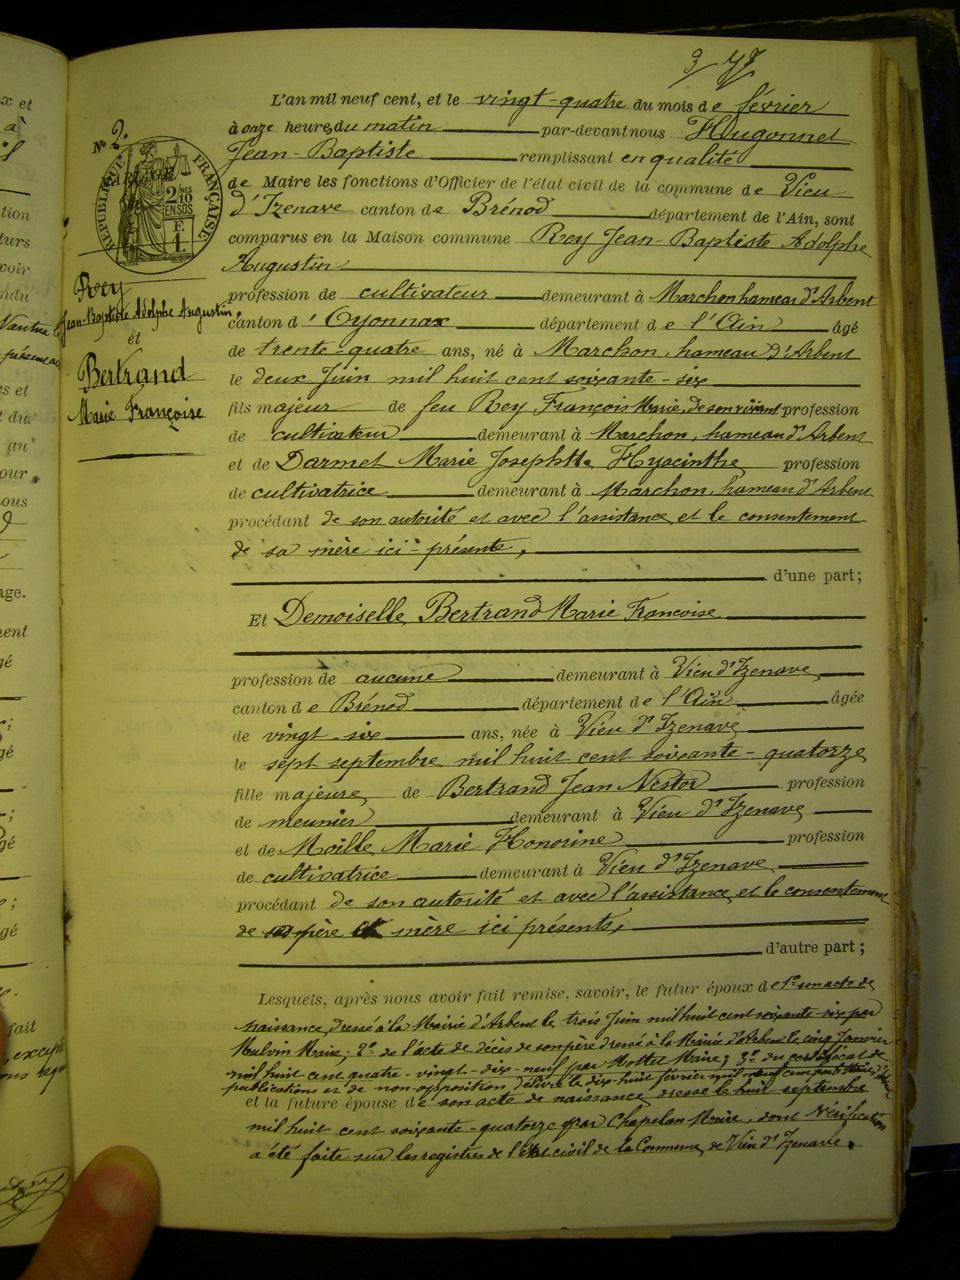 L'an mil neuf cent, et le vingt-quatre du mois de février
à onze heures du matin par-devant nous Hugonnet
Jean-Baptiste remplissant en qualité
de Maire les fonctions d'Officier de l'état civil de la commune de Vieu
d'Izenave canton de Brénod département de l'Ain, sont
comparus en la Maison commune Rey Jean-Baptiste Adolphe
Augustin
profession de cultivateur demeurant à Marchon hameau d'Arbent
canton d'Oyonnax département de l'Ain âgé
de trente-quatre ans, né à Marchon, hameau d'Arbent
le deux Juin mil huit cent soixante-six
fils majeur de feu Rey François Marie, de son vivant profession
de cultivateur demeurant à Marchon, hameau d'Arbent
et de Darmet Marie Josephte Hyacinthe profession
de cultivatrice demeurant à Marchon, hameau d'Arbent
procédant de son autorité et avec l'assistance et le consentement
de sa mère ici-présente,
d'une part;
Et Demoiselle Bertrand Marie Françoise
profession de aucune demeurant à Vieu d'Izenave
canton de Brénod département de l'Ain âgée
de vingt-six ans, née à Vieu d'Izenave
le sept septembre mil huit cent soixante-quatorze
fille majeure de Bertrand Jean Nestor profession
de meunier demeurant à Vieu d'Izenave
et de Moille Marie Honorine profession
de cultivatrice demeurant à Vieu d'Izenave
procédant de son autorité et avec l'assistance et le consentement
de père et mère ici présents,
d'autre part;
Lesquels, après nous avoir fait remise, savoir, le futur époux de 1º son acte de
naissance, dressé à la Mairie d'Arbent le trois Juin mil huit cent soixante-six par
Maire; 2º de l'acte de décès de son père dressé à la Mairie d'Arbent le cinq Janvier
mil huit cent quatre-vingt-dix-neuf par Maire; 3º du certificat de
publications et de non-opposition délivré le dix-huit février mil neuf cent
et la future épouse de son acte de naissance dressé le huit septembre
mil huit cent soixante-quatorze par Chapelan Maire, dont vérification
a été faite sur les registres de l'état civil de la Commune de Vieu d'Izenave.
Nº 2.
MARIAGE
RÉPUBLIQUE FRANÇAISE
2/10
EN SUS
1 F.
Rey
Jean-Baptiste Adolphe Augustin
et
Bertrand
Marie Françoise